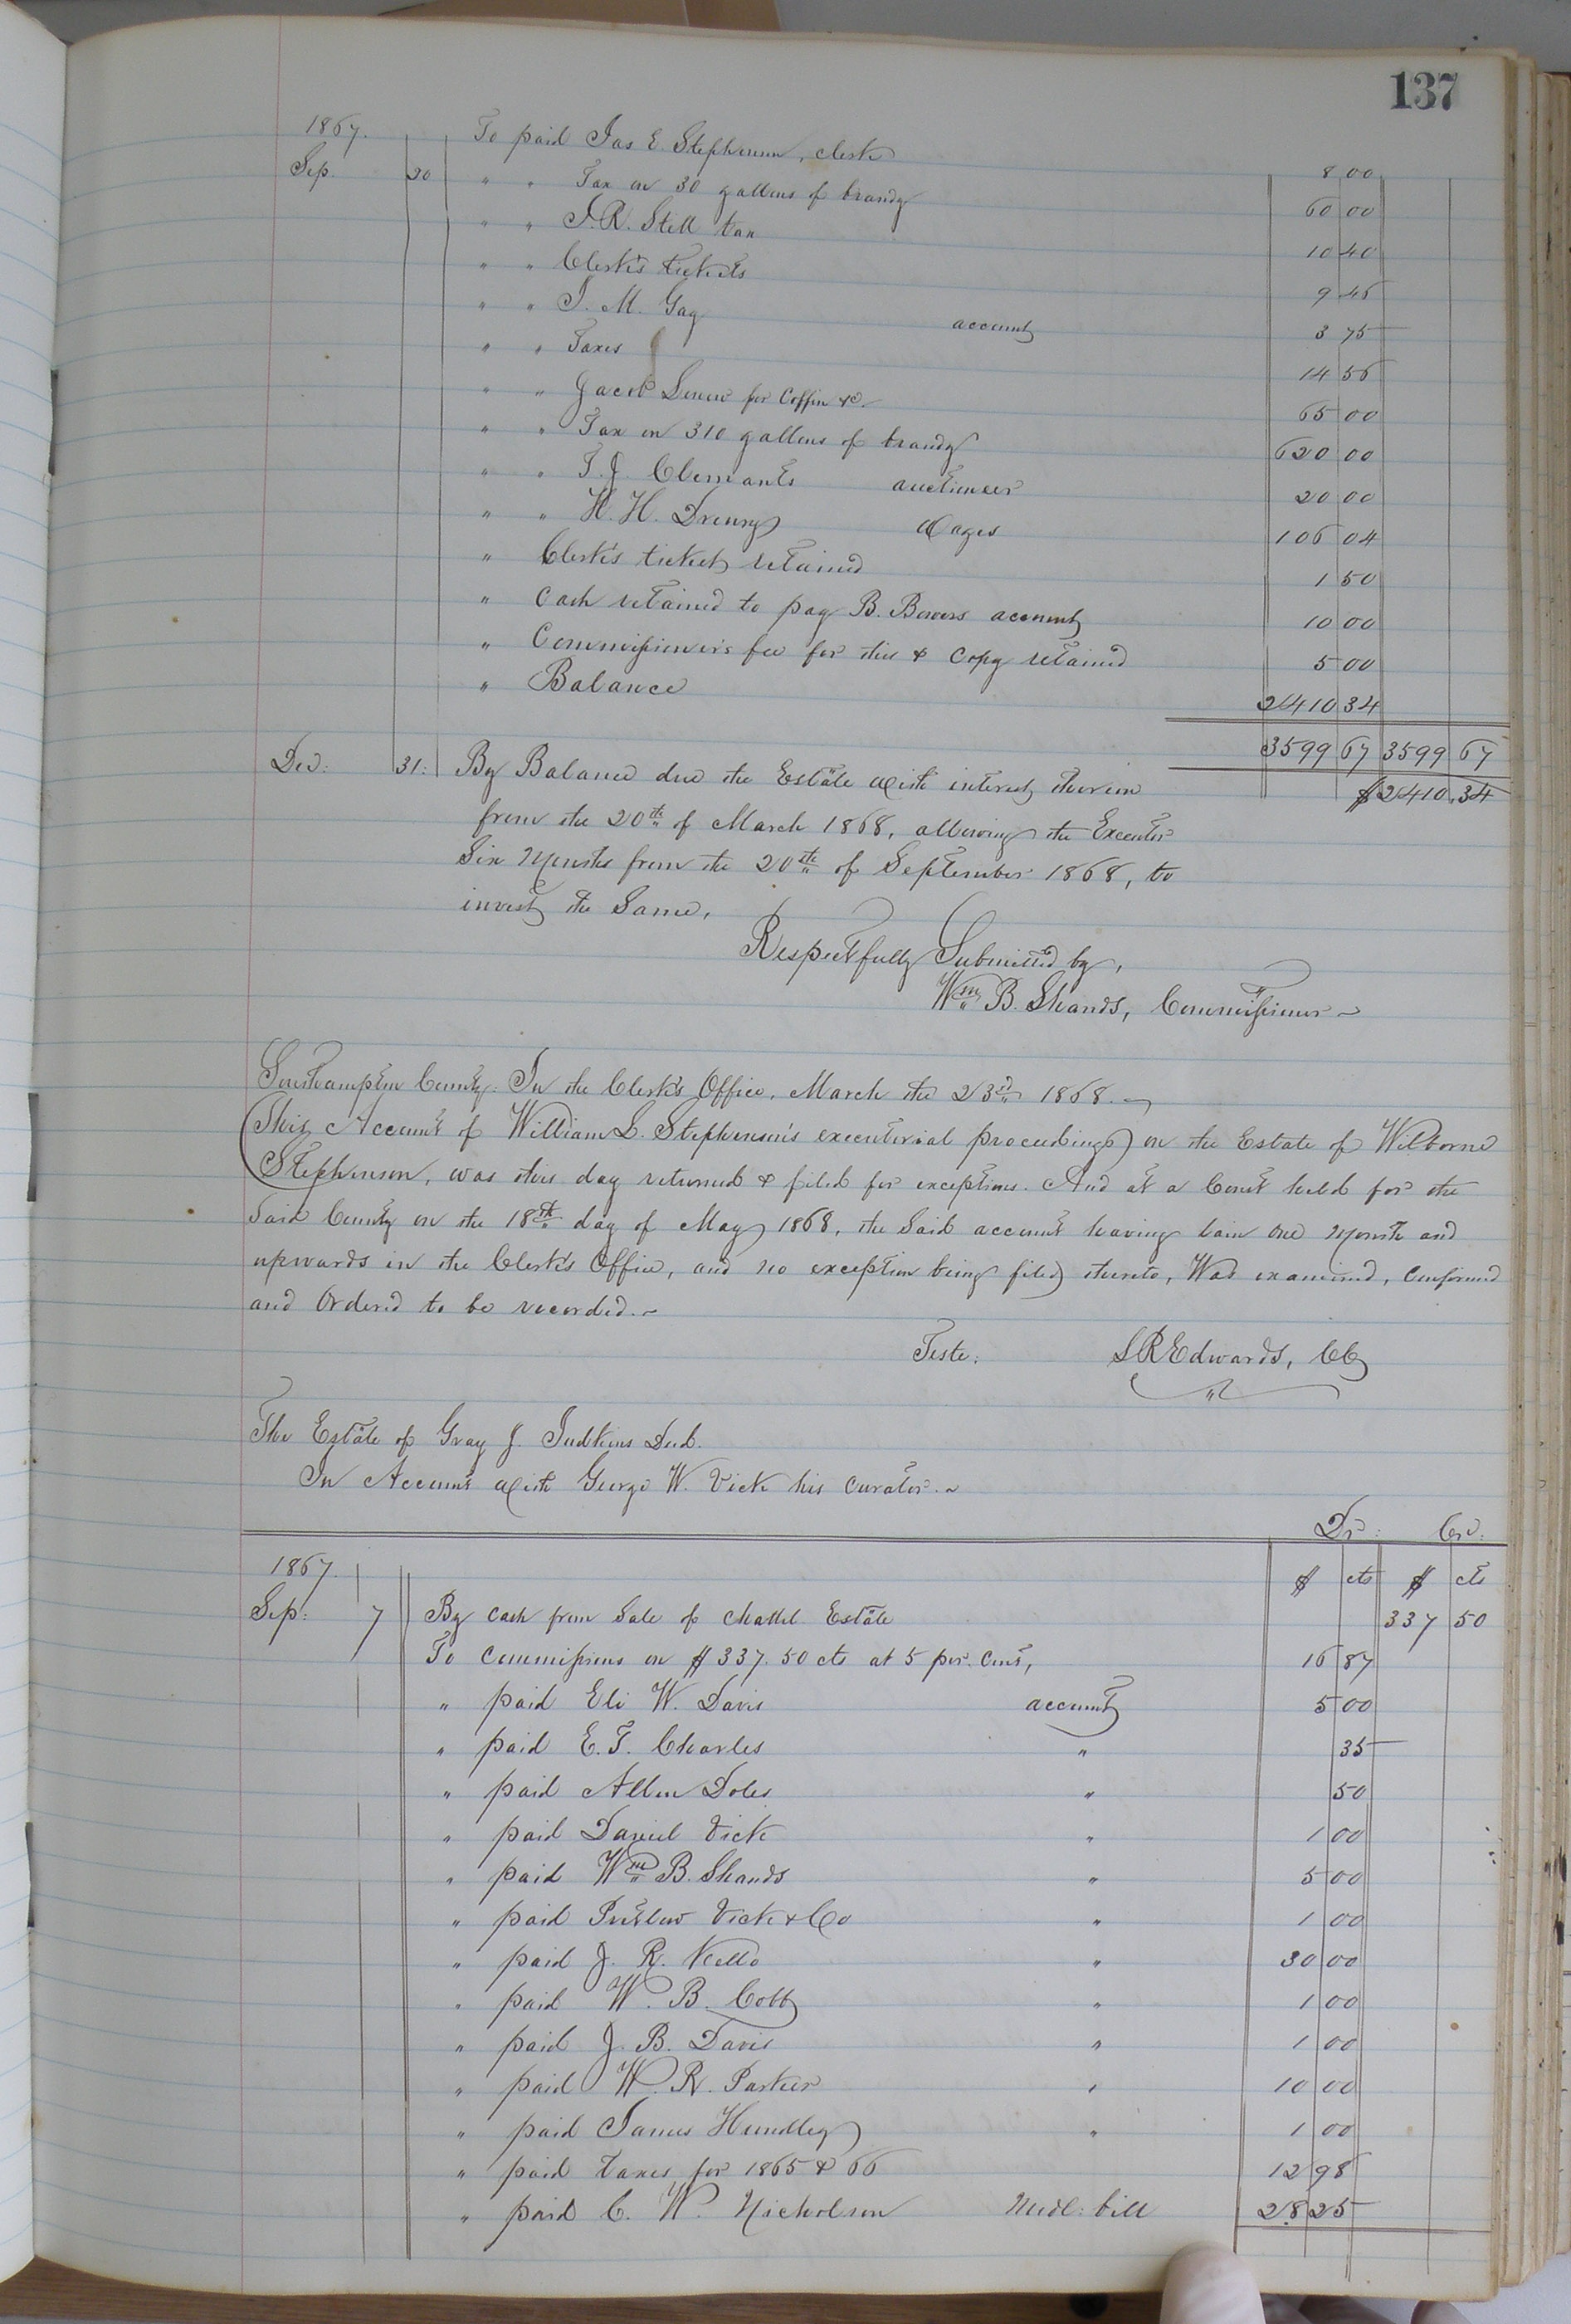 137
1867. To paid Jas E. Stephenson, clerk 8 00
Sep. 20 " " Tax on 30 gallons of brandy 60 00
" " J. R. Stell tax 10 40
" " Clerk's tickets 9 45
" " J. M. Gay account 3 75
" " Taxes 14 56
" " Jacob for Coffin &c. 65 00
" " Tax on 310 gallons of brandy 620 00
" " T. J. Clemants auctioneer 20 00
" " H. H. Drewry Wages 106 04
" Clerk's ticket retained 1 50
" Cash retained to pay B. Bowers account 10 00
" Commissioner's fee for this & copy retained 5 00
" Balance 2410 34
3599 67 3599 67
Dec: 31: By Balance due the Estate with interest thereon $2410.34
from the 20th of March 1868, allowing the Executor
Six Months from the 20th of September 1868, to
invest the Same,
Respectfully Submitted by,
Wm B. Shands, Commissioner ~
Southampton County: In the Clerk's Office, March the 23d 1868. ~
This Account of William L. Stephenson's executorial proceedings on the Estate of Wilborne
Stephenson, was this day returned & filed for exceptions. And at a Court held for the
Said County on the 18th day of May 1868, the Said account having lain one Month and
upwards in the Clerk's Office, and no exception being filed thereto, Was examined, confirmed
and Ordered to be recorded. ~
Teste: L R Edwards, CC
The Estate of Gray J. Judkins Decd.
In Account with George W. Vick his curator. ~
Dr: Cr:
1867. $ cts $ cts
Sep: 7 By cash from Sale of chattel Estate 337 50
To commissions on $337.50 cts at 5 per. cent, 16 87
" paid Eli W. Davis account 5 00
" paid E. T. Charles " 35
" paid Allen Doles " 50
" paid Daniel Vick " 1 00
" paid Wm B. Shands " 5 00
" paid Pretlow Vick & Co " 1 00
" paid J. R. Kello " 30 00
" paid W. B. Cobb " 1 00
" paid J. B. Davis " 1 00
" paid W. R. Parker " 10 00
" paid James Hundley " 1 00
" paid taxes for 1865 & 66 12 98
" paid C. W. Nicholson Medl: bill 28 25